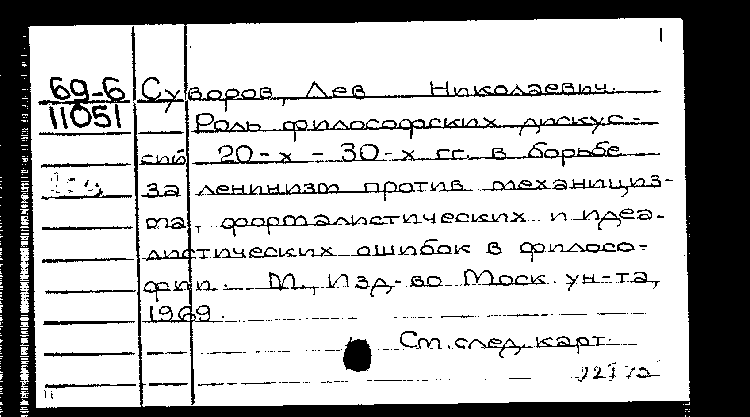 1
69-6 Суворов, Лев Николаевич.
11051 Роль философских дискус-
сий 20-х - 30-х гг. в борьбе
за ленинизм против механициз-
ма, формалистических и идеа-
листических ошибок в филосо-
фии. М., Изд-во Моск. ун-та,
1969.
См. след. карт.